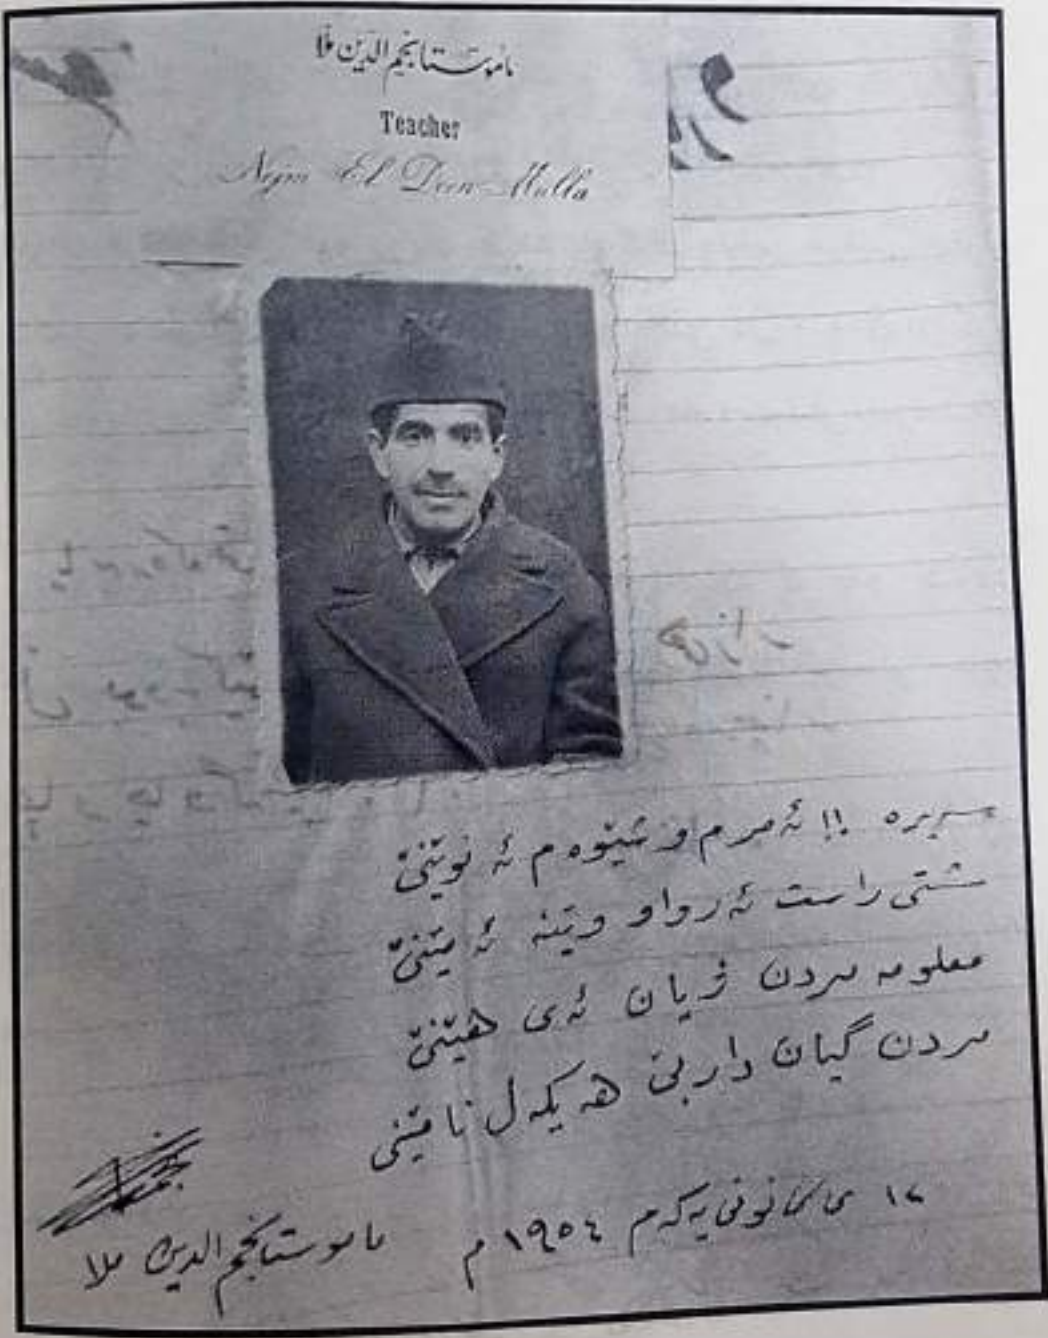 مامۆستا نجم الدین ملا
Teacher
Nejm El Deen Mulla
سەیرە !! ئەمرم و شێوەم ئە نوێنێ
شتی راست ئەرواو وێنە ئەمێنێ
معلومە مردن ژیان ئەی هێنێ
مردن گیان دار بێ هەیکەل نامێنێ
١٢ ی کانونی یەکەم ١٩٥٤ م
ماموستا نجم الدین ملا